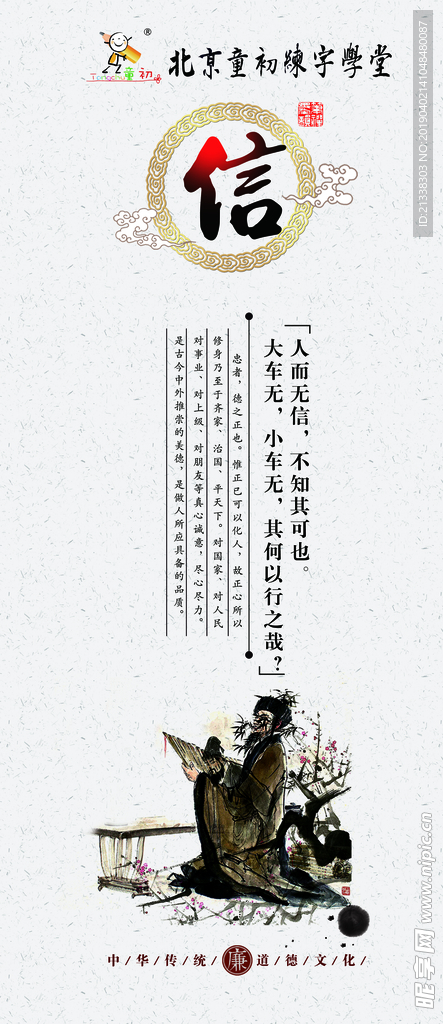 Tongchu童初
®
北京童初練字學堂
信
「人而无信，不知其可也。
大车无，小车无，其何以行之哉？」
忠者，德之正也。惟正己可以化人，故正心所以
修身乃至于齐家、治国、平天下。对国家、对人民
对事业、对上级、对朋友等真心诚意，尽心尽力。
是古今中外推崇的美德，是做人所应具备的品质。
中/华/传/统/廉/道/德/文/化/
ID:21338303 NO:20190402141048480087
昵字网 www.nipic.cn